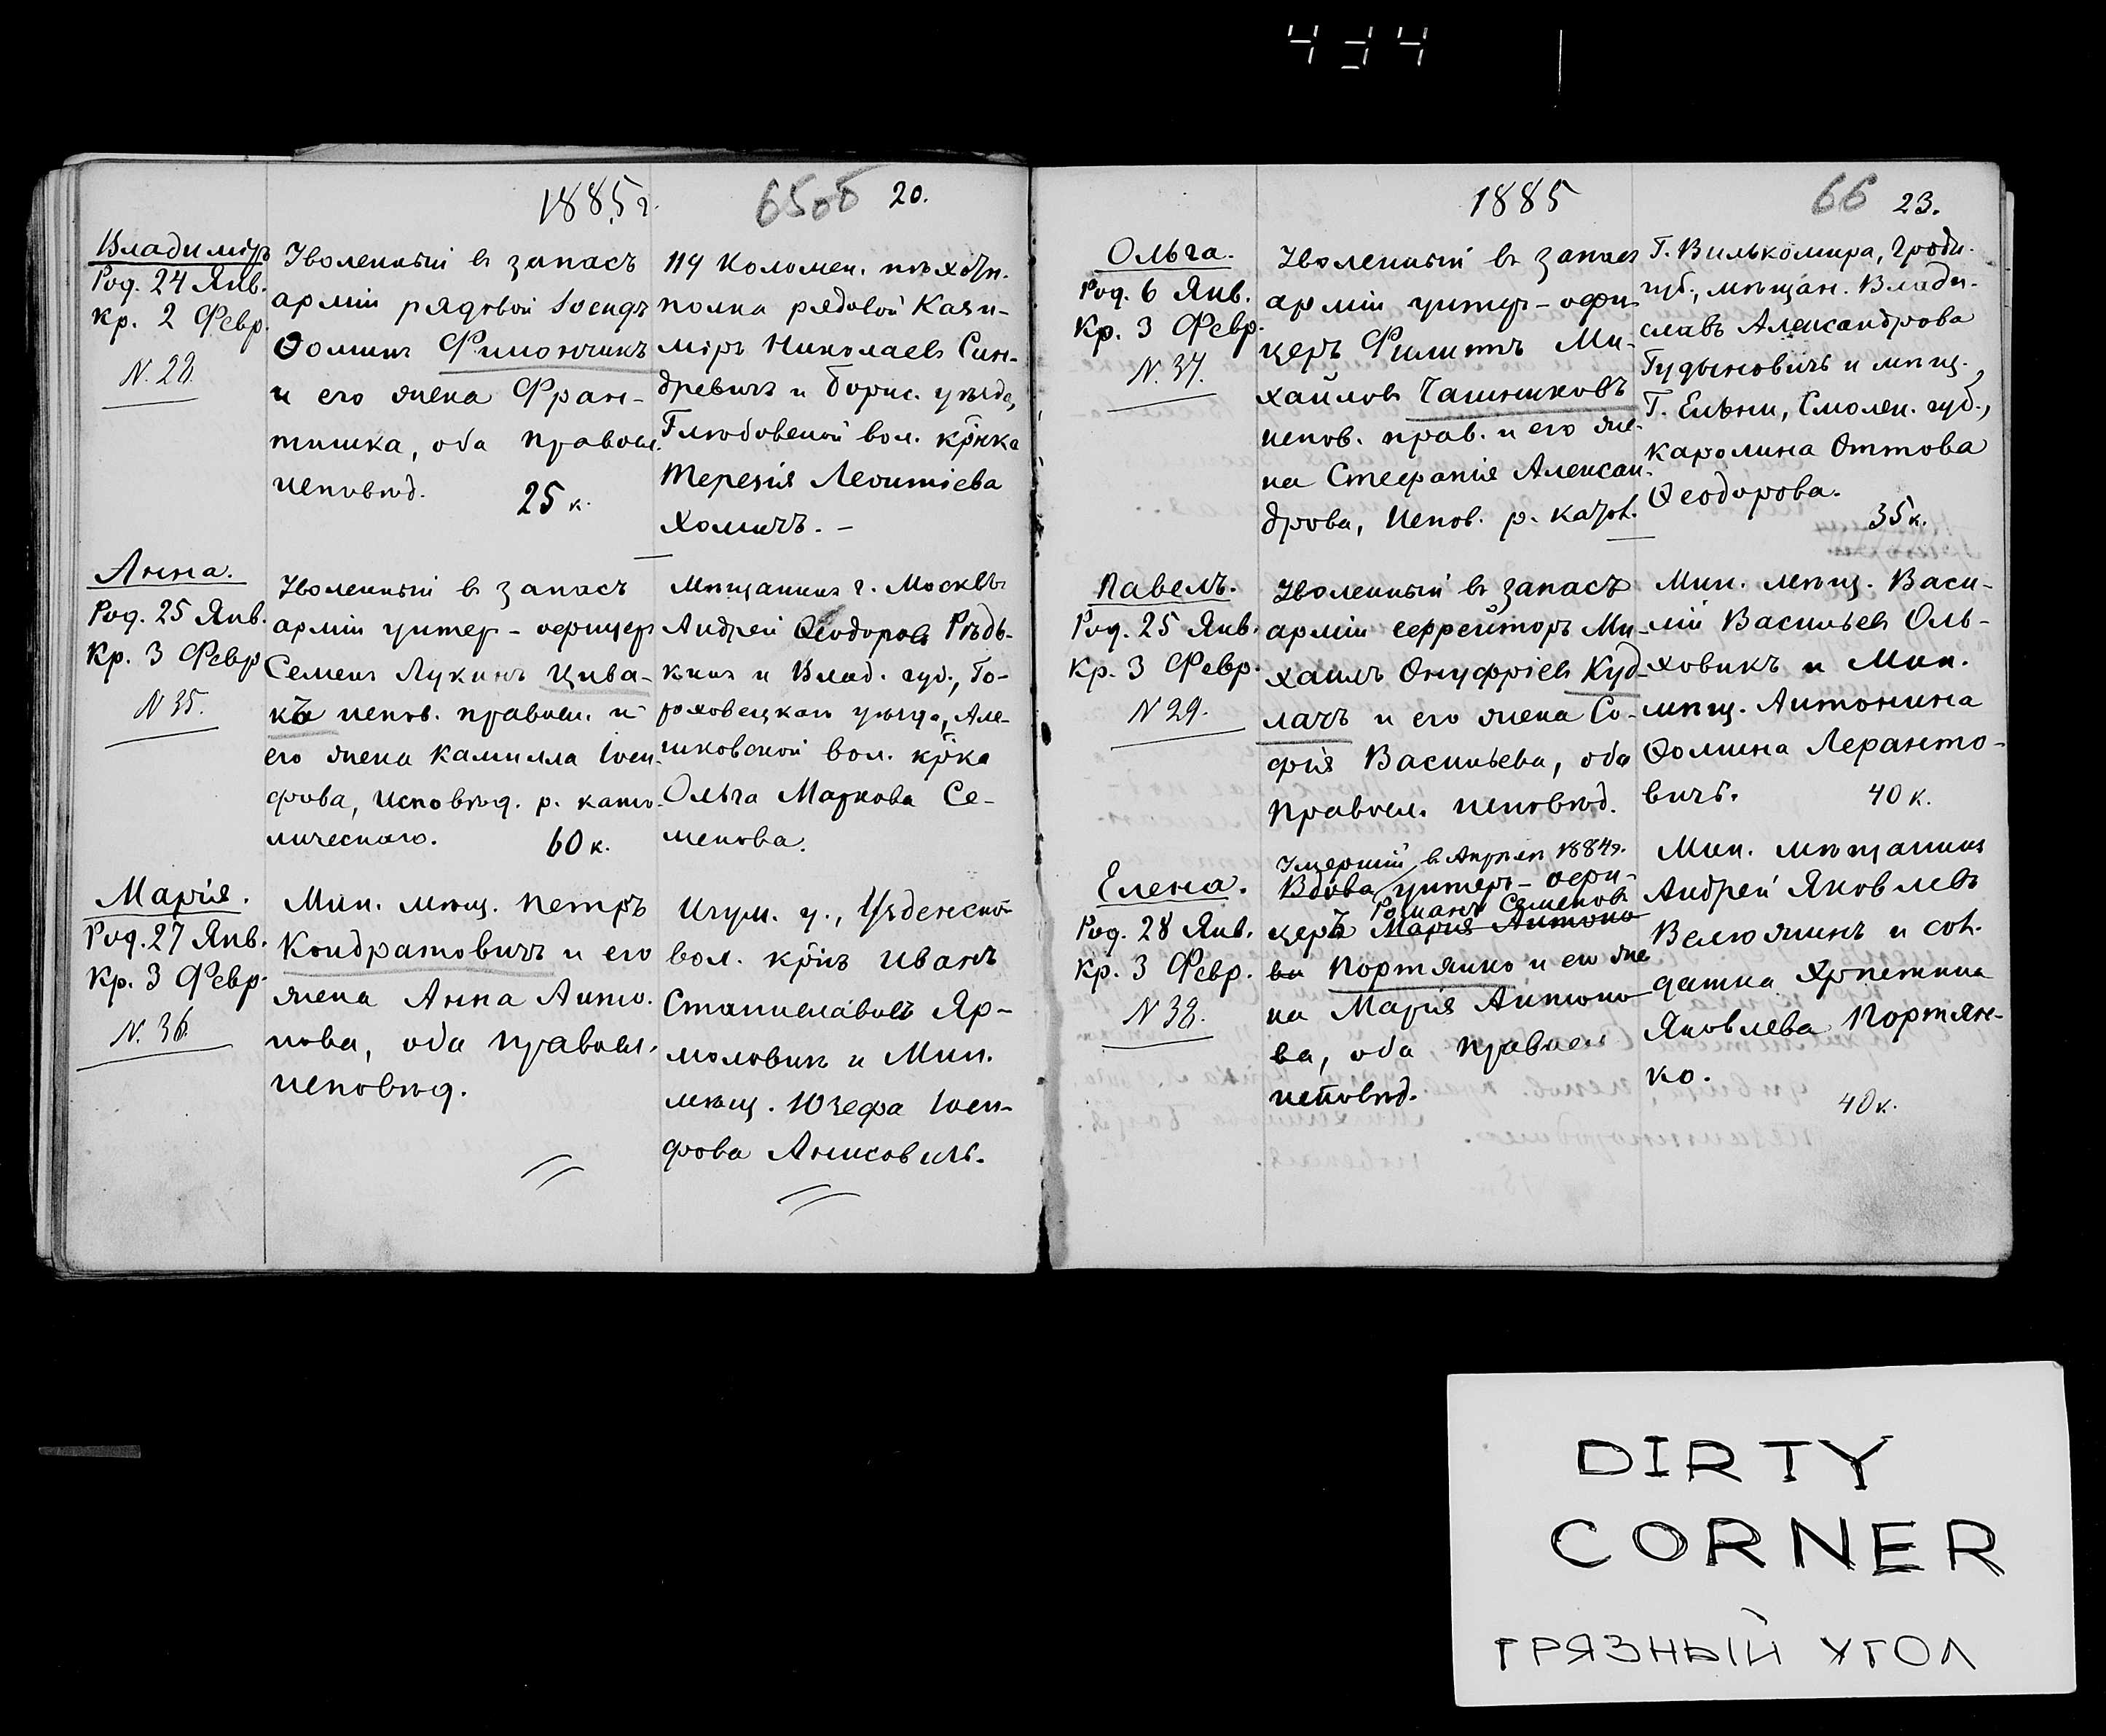 434
1885 г.
65об 20.
Владиміръ
Род. 24 Янв.
Кр. 2 Февр.
N. 28.
Уволенный въ запасъ
арміи рядовой Іосифъ
Ѳоминъ Филончикъ
и его жена Фран-
тишка, оба правосл.
исповѣд. 25 к.
119 Коломен. пѣхотн.
полка рядовой Кази-
міръ Николаевъ Син-
древичъ и Борис. уѣзда,
вол. кр̃нка
Терезія Леонтіева
Хомичъ. –
Анна.
Род. 25 Янв.
Кр. 3 Февр
N 35.
Уволенный въ запасъ
арміи унтер-офицеръ
Семенъ Лукинъ Цива-
къ испов. правосл. и
его жена Камилла Іоси-
фова, исповѣд. р. като-
лическаго. 60 к.
Мѣщанинъ г. Москвы
Андрей Ѳеодоровъ Рѣдь-
кинъ и Влад. губ., Го-
роховецкаго уѣзда, Але-
шковской вол. кр̃ка
Ольга Маркова Се-
менова.
Марія.
Род. 27 Янв.
Кр. 3 Февр.
N. 36.
Мин. мѣщ. Петръ
Кондратовичъ и его
жена Анна Анто-
нова, оба правосл.
исповѣд.
Игум. у., Узденской
вол. кр̃нъ Иванъ
Станиславовъ Яр-
моловичъ и Мин.
мѣщ. Юзефа Іоси-
фова Анисовичъ.
1885
66 23.
Ольга.
Род. 6 Янв.
Кр. 3 Февр.
N. 37.
Уволенный въ запасъ
арміи унтер-офи-
церъ Филиппъ Ми-
хайловъ Чашниковъ
испов. прав. и его же-
на Стефанія Алексан-
дрова, испов. р. катол.
Г. Вилькомира, Гродн.
губ., мѣщан. Влади-
славъ Александрова
Гудыновичъ и мѣщ.
Г. Ельни, Смолен. губ.,
Каролина Оттова
Ѳеодорова.
35 к.
Павелъ.
Род. 25 Янв.
Кр. 3 Февр.
N 29.
Уволенный въ запасъ
арміи ефрейторъ Ми-
хаилъ Онуфріевъ Куд-
лачъ и его жена Со-
фія Васильева, оба
правосл. исповѣд.
Мин. мѣщ. Васи-
лій Васильевъ Оль-
ховикъ и Мин.
мѣщ. Антонина
Ѳомина Леранто-
вичъ. 40 к.
Елена.
Род. 28 Янв.
Кр. 3 Февр.
N 38.
Умершій въ Апрѣлѣ 1884 г.
Вдова унтеръ-офи-
Романъ Семеновъ
церъ Марія Антоно
ва Портянко и его же
на Марія Антоно
ва, оба правосл
исповѣд.
Мин. мѣщанинъ
Андрей Яковлевъ
Велюжинъ и сол-
датка Христина
Яковлева Портян-
ко.
40 к.
DIRTY
CORNER
ГРЯЗНЫЙ УГОЛ